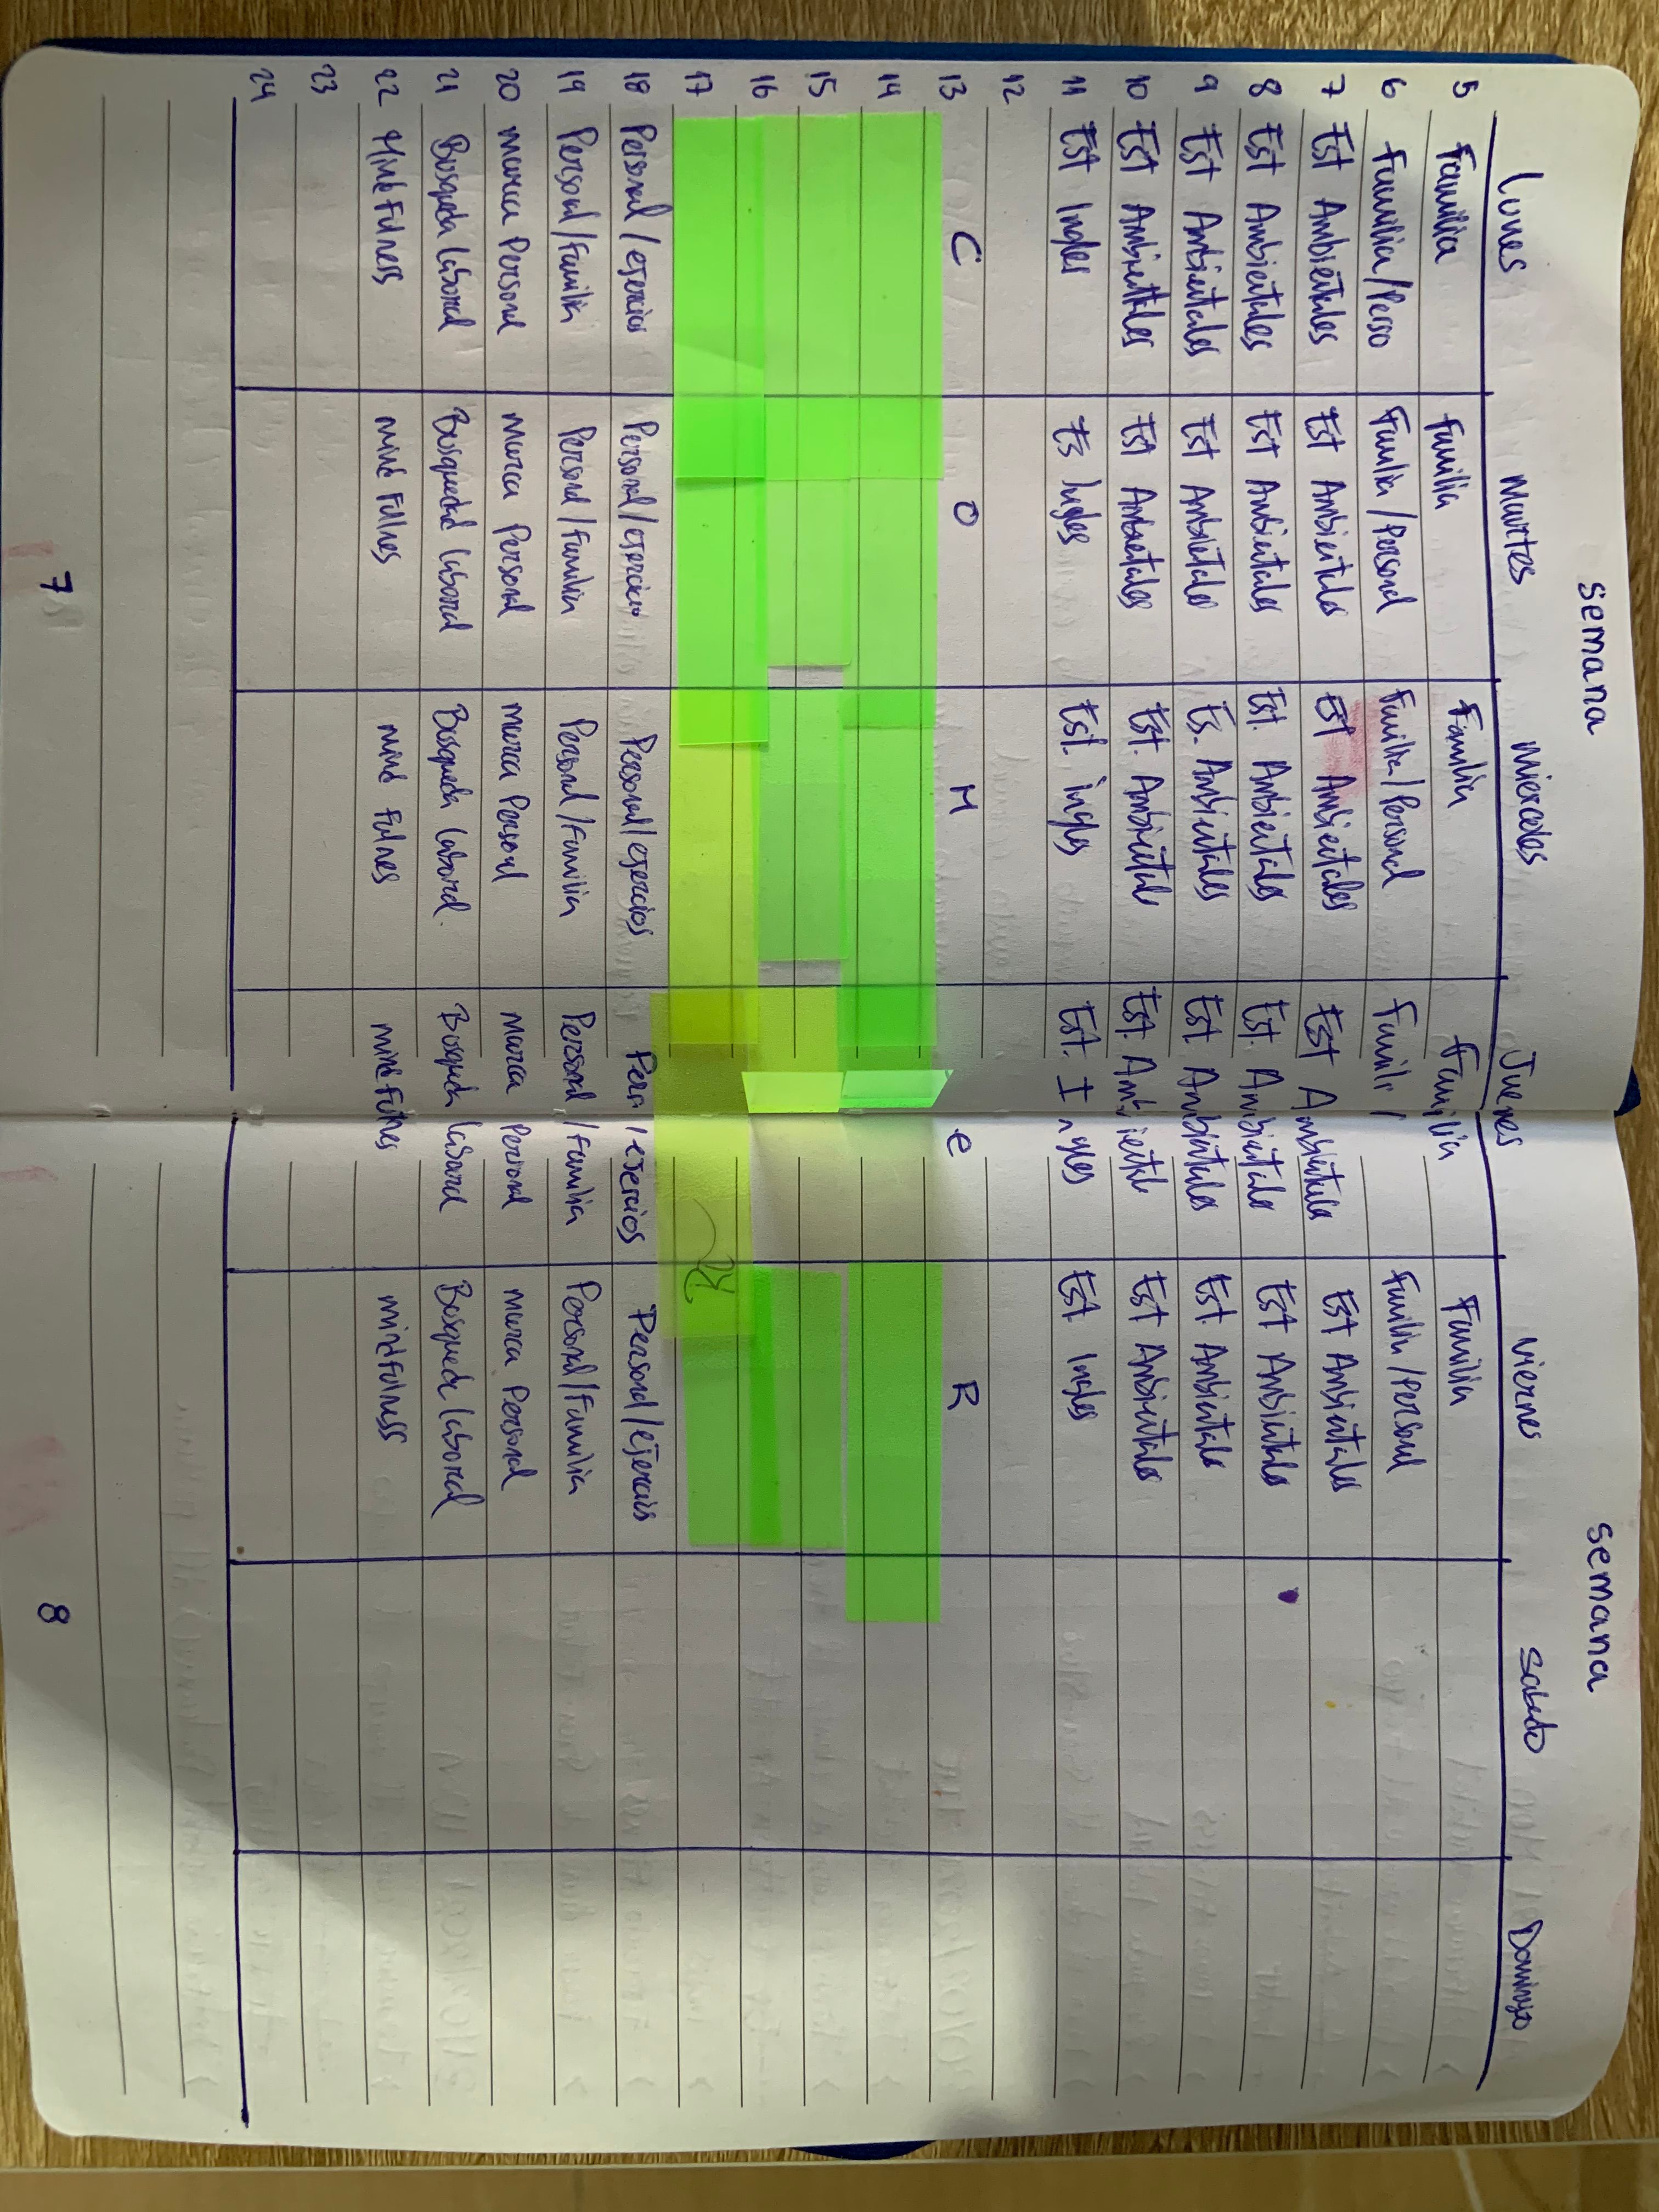 semana semana
Lunes Martes Miercoles Jueves Viernes Sabado Domingo
5 Familia Familia Familia Familia Familia
6 Familia/Perso Familia/Personal Familia/Personal Famili/ Familia/Personal
7 Est Ambientales Est Ambientales Est Ambientales Est Ambientales Est Ambientales
8 Est Ambientales Est Ambientales Est. Ambientales Est. Ambientales Est Ambientales
9 Est Ambientales Est Ambientales Es. Ambientales Est. Ambientales Est Ambientales
10 Est Ambientales Est Ambientales Est. Ambientales Est. Ambientale Est Ambientales
11 Est Ingles Es Ingles Est. ingles Est. Ingles Est Ingles
12
13 C O M e R
14
15
16
17
18 Personal/ejercicios Personal/ejercicios Personal/ejercicios Pers/ejercios Personal/ejercicios
19 Personal/Familia Personal/Familia Personal/Familia Personal/Familia Personal/Familia
20 Marca Personal Marca Personal Marca Personal Marca Personal Marca Personal
21 Busqueda laboral Busqueda laboral Busqueda laboral. Busqueda laboral Busqueda laboral
22 Mind Fulness Mind Fullnes Mind Fulnes Mind Fulnes mind Fulness
23
24
7 8